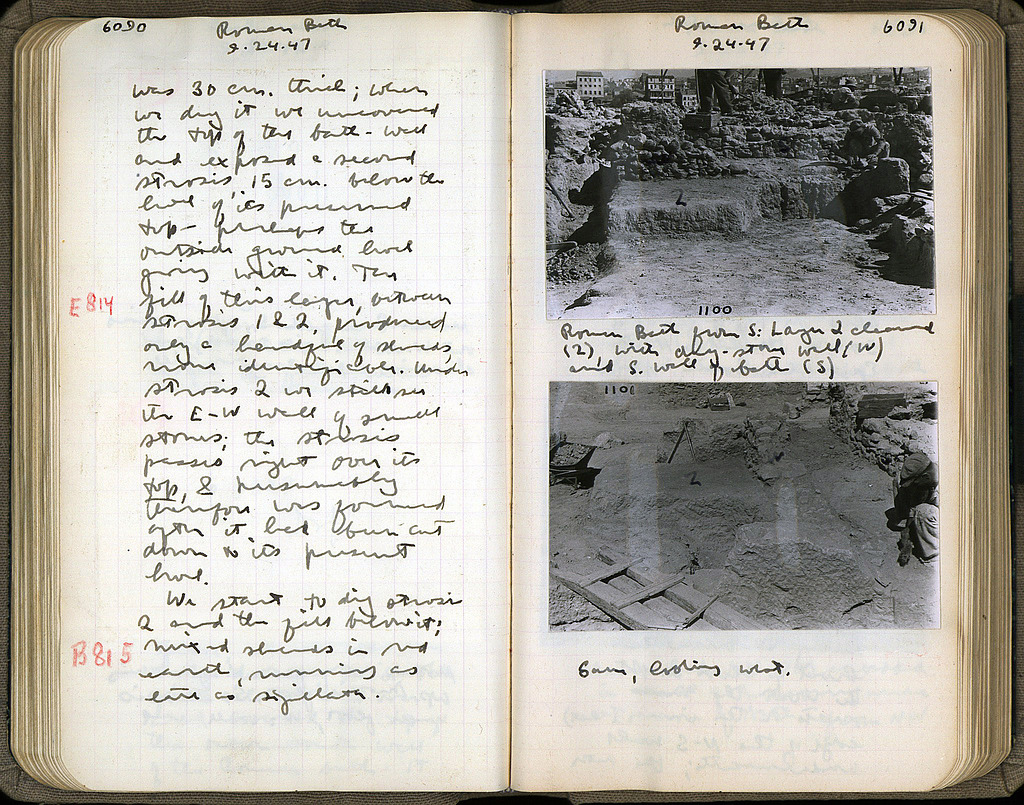 6090
Roman Bath
9.24.47
was 30 cm. thick; when
we dug it we uncovered
the top of the bath-wall
and exposed a second
strosis, 15 cm. below the
level of its preserved
top - perhaps the
outside ground level
going with it. The
E 814
fill of this layer, between
strosis 1 & 2, produced
only a handful of sherds,
none identifiable. Under
strosis 2 we still see
the E-W wall of small
stones; the strosis
passes right over its
top, & presumably
therefore was formed
after it had been cut
down to its present
level.
We start to dig strosis
2 and the fill below it;
B 815
mixed sherds in red
earth, running as
late as sigillata.
6091
Roman Bath
9.24.47
2
1100
Roman Bath from S: Layer 2 cleaned
(2), with dry-stone wall (W)
and S. wall of bath (S)
1101
2
Same, looking west.